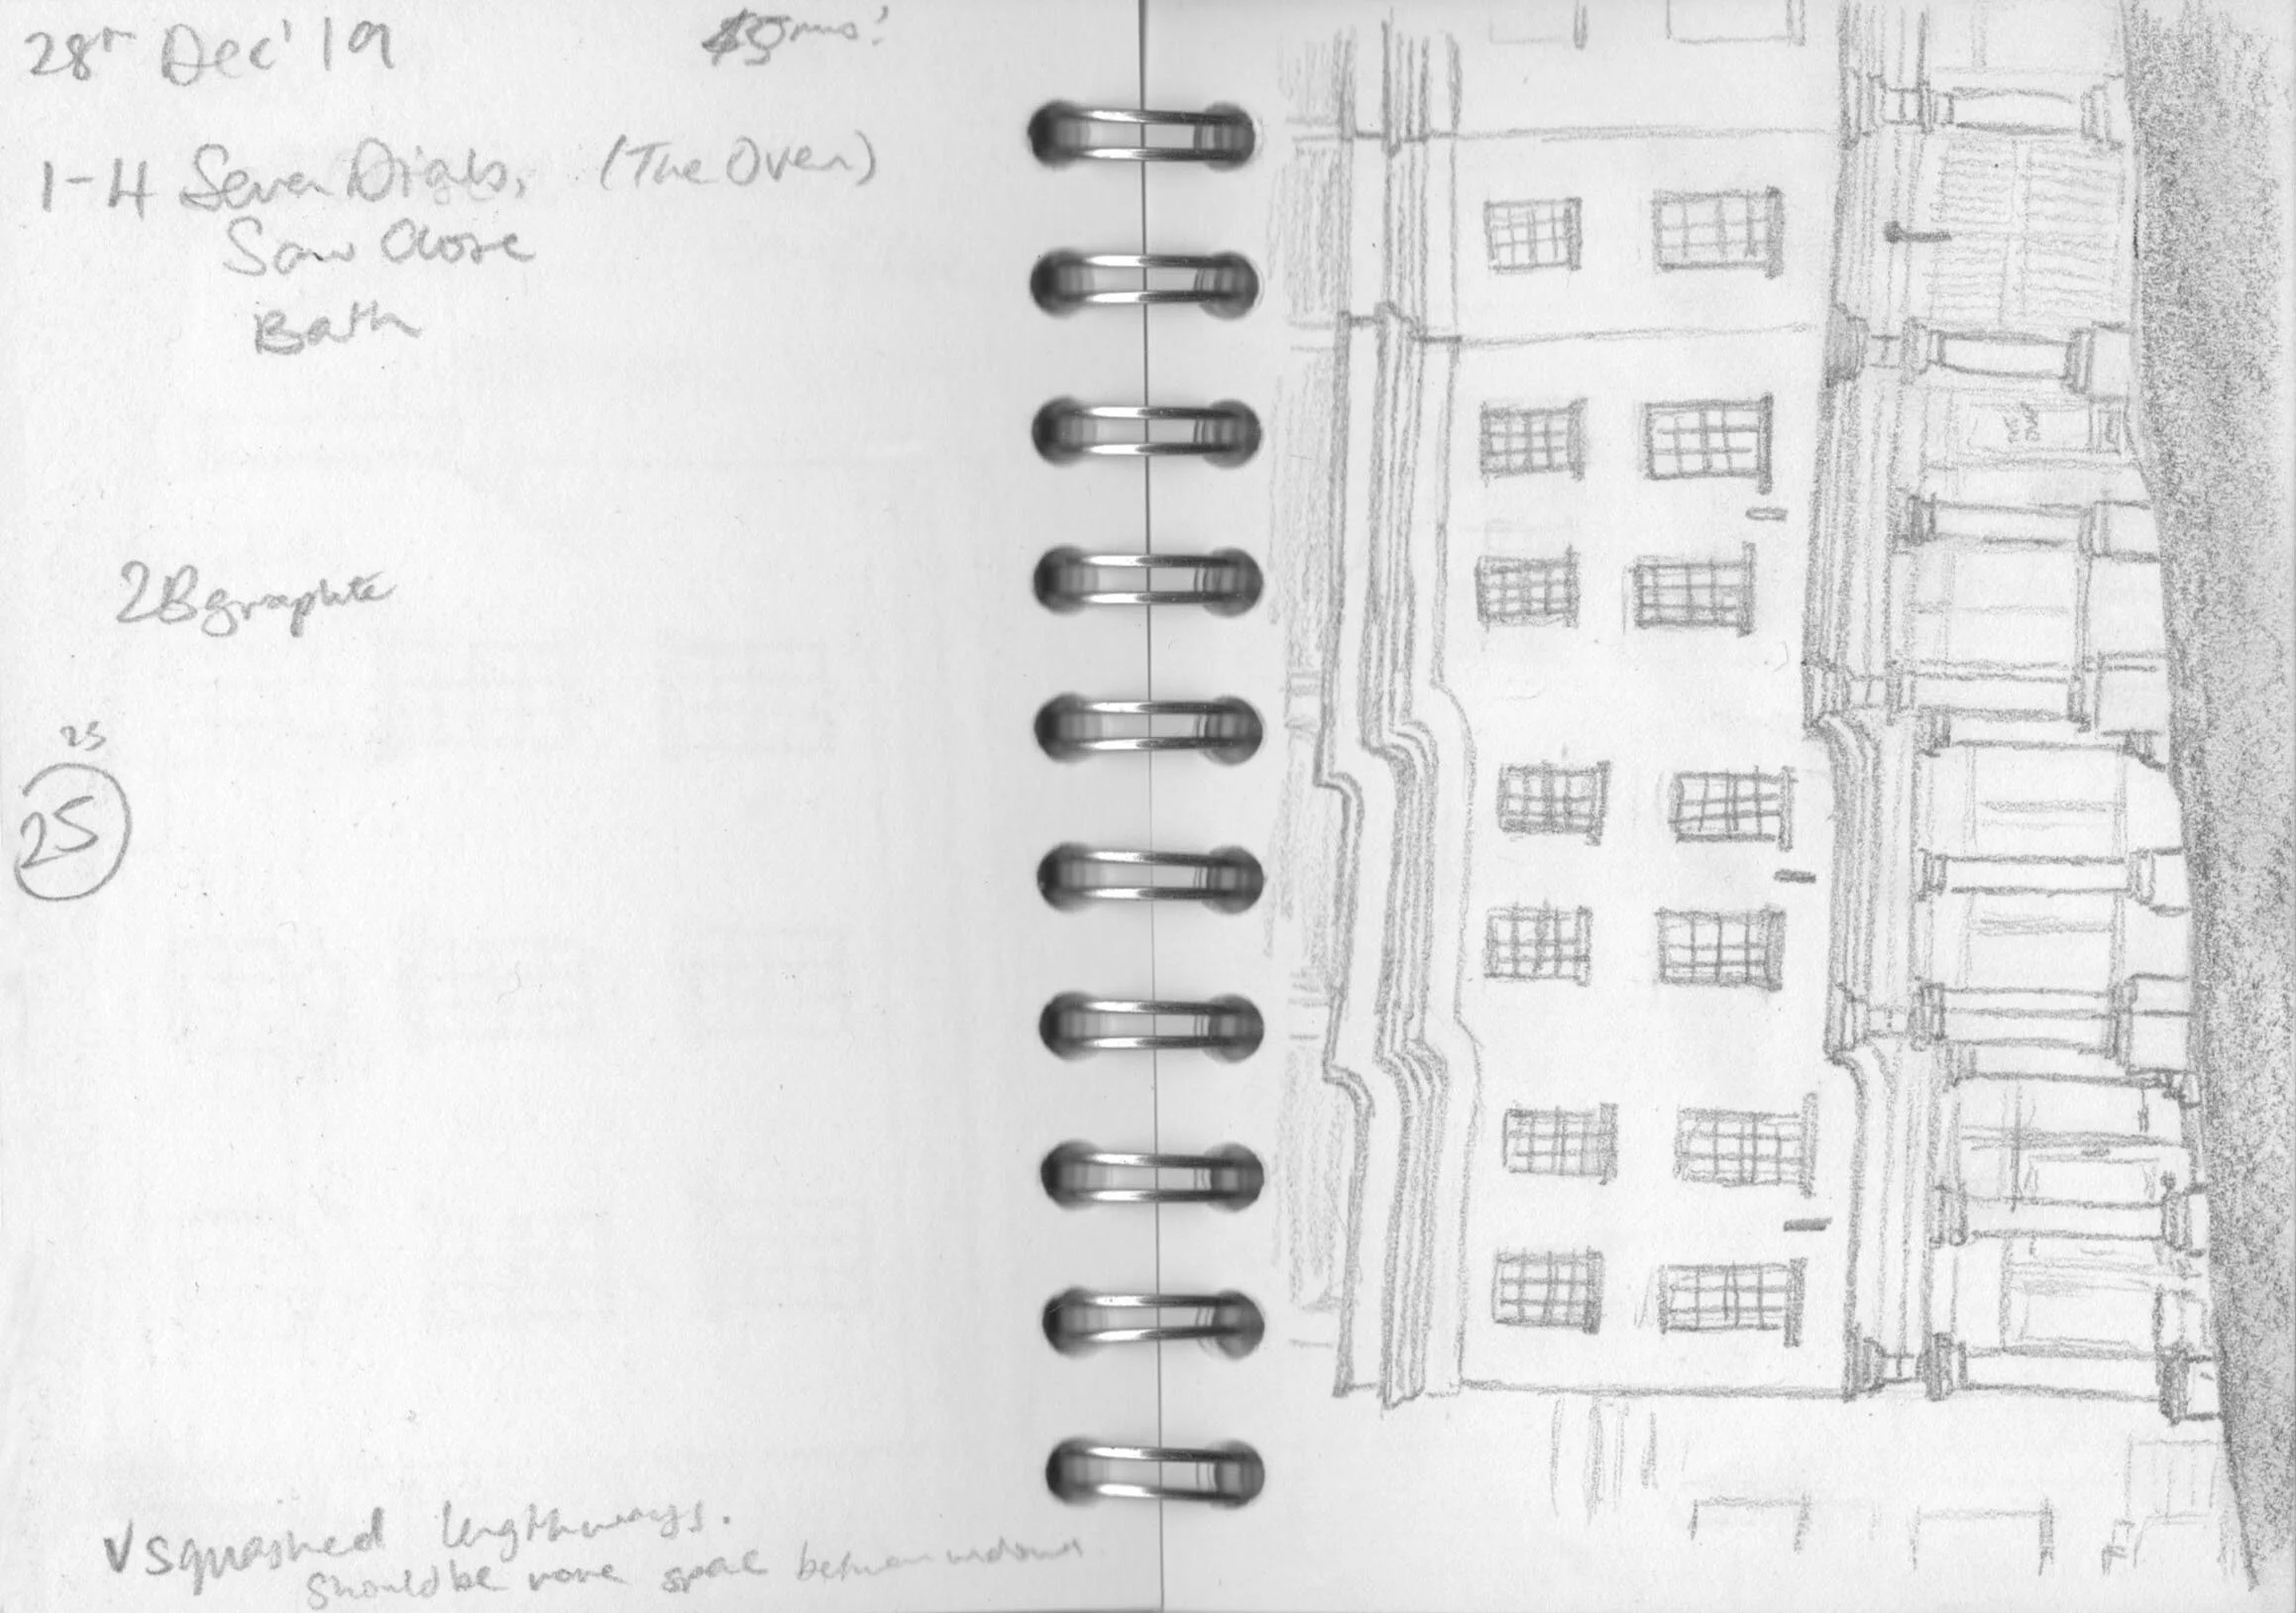 28th Dec '19
45mns!
1-4 Seven Dials, (The Oven)
Saw Close
Bath
2B graphite
25
25
V squashed lengthways.
should be more space between windows